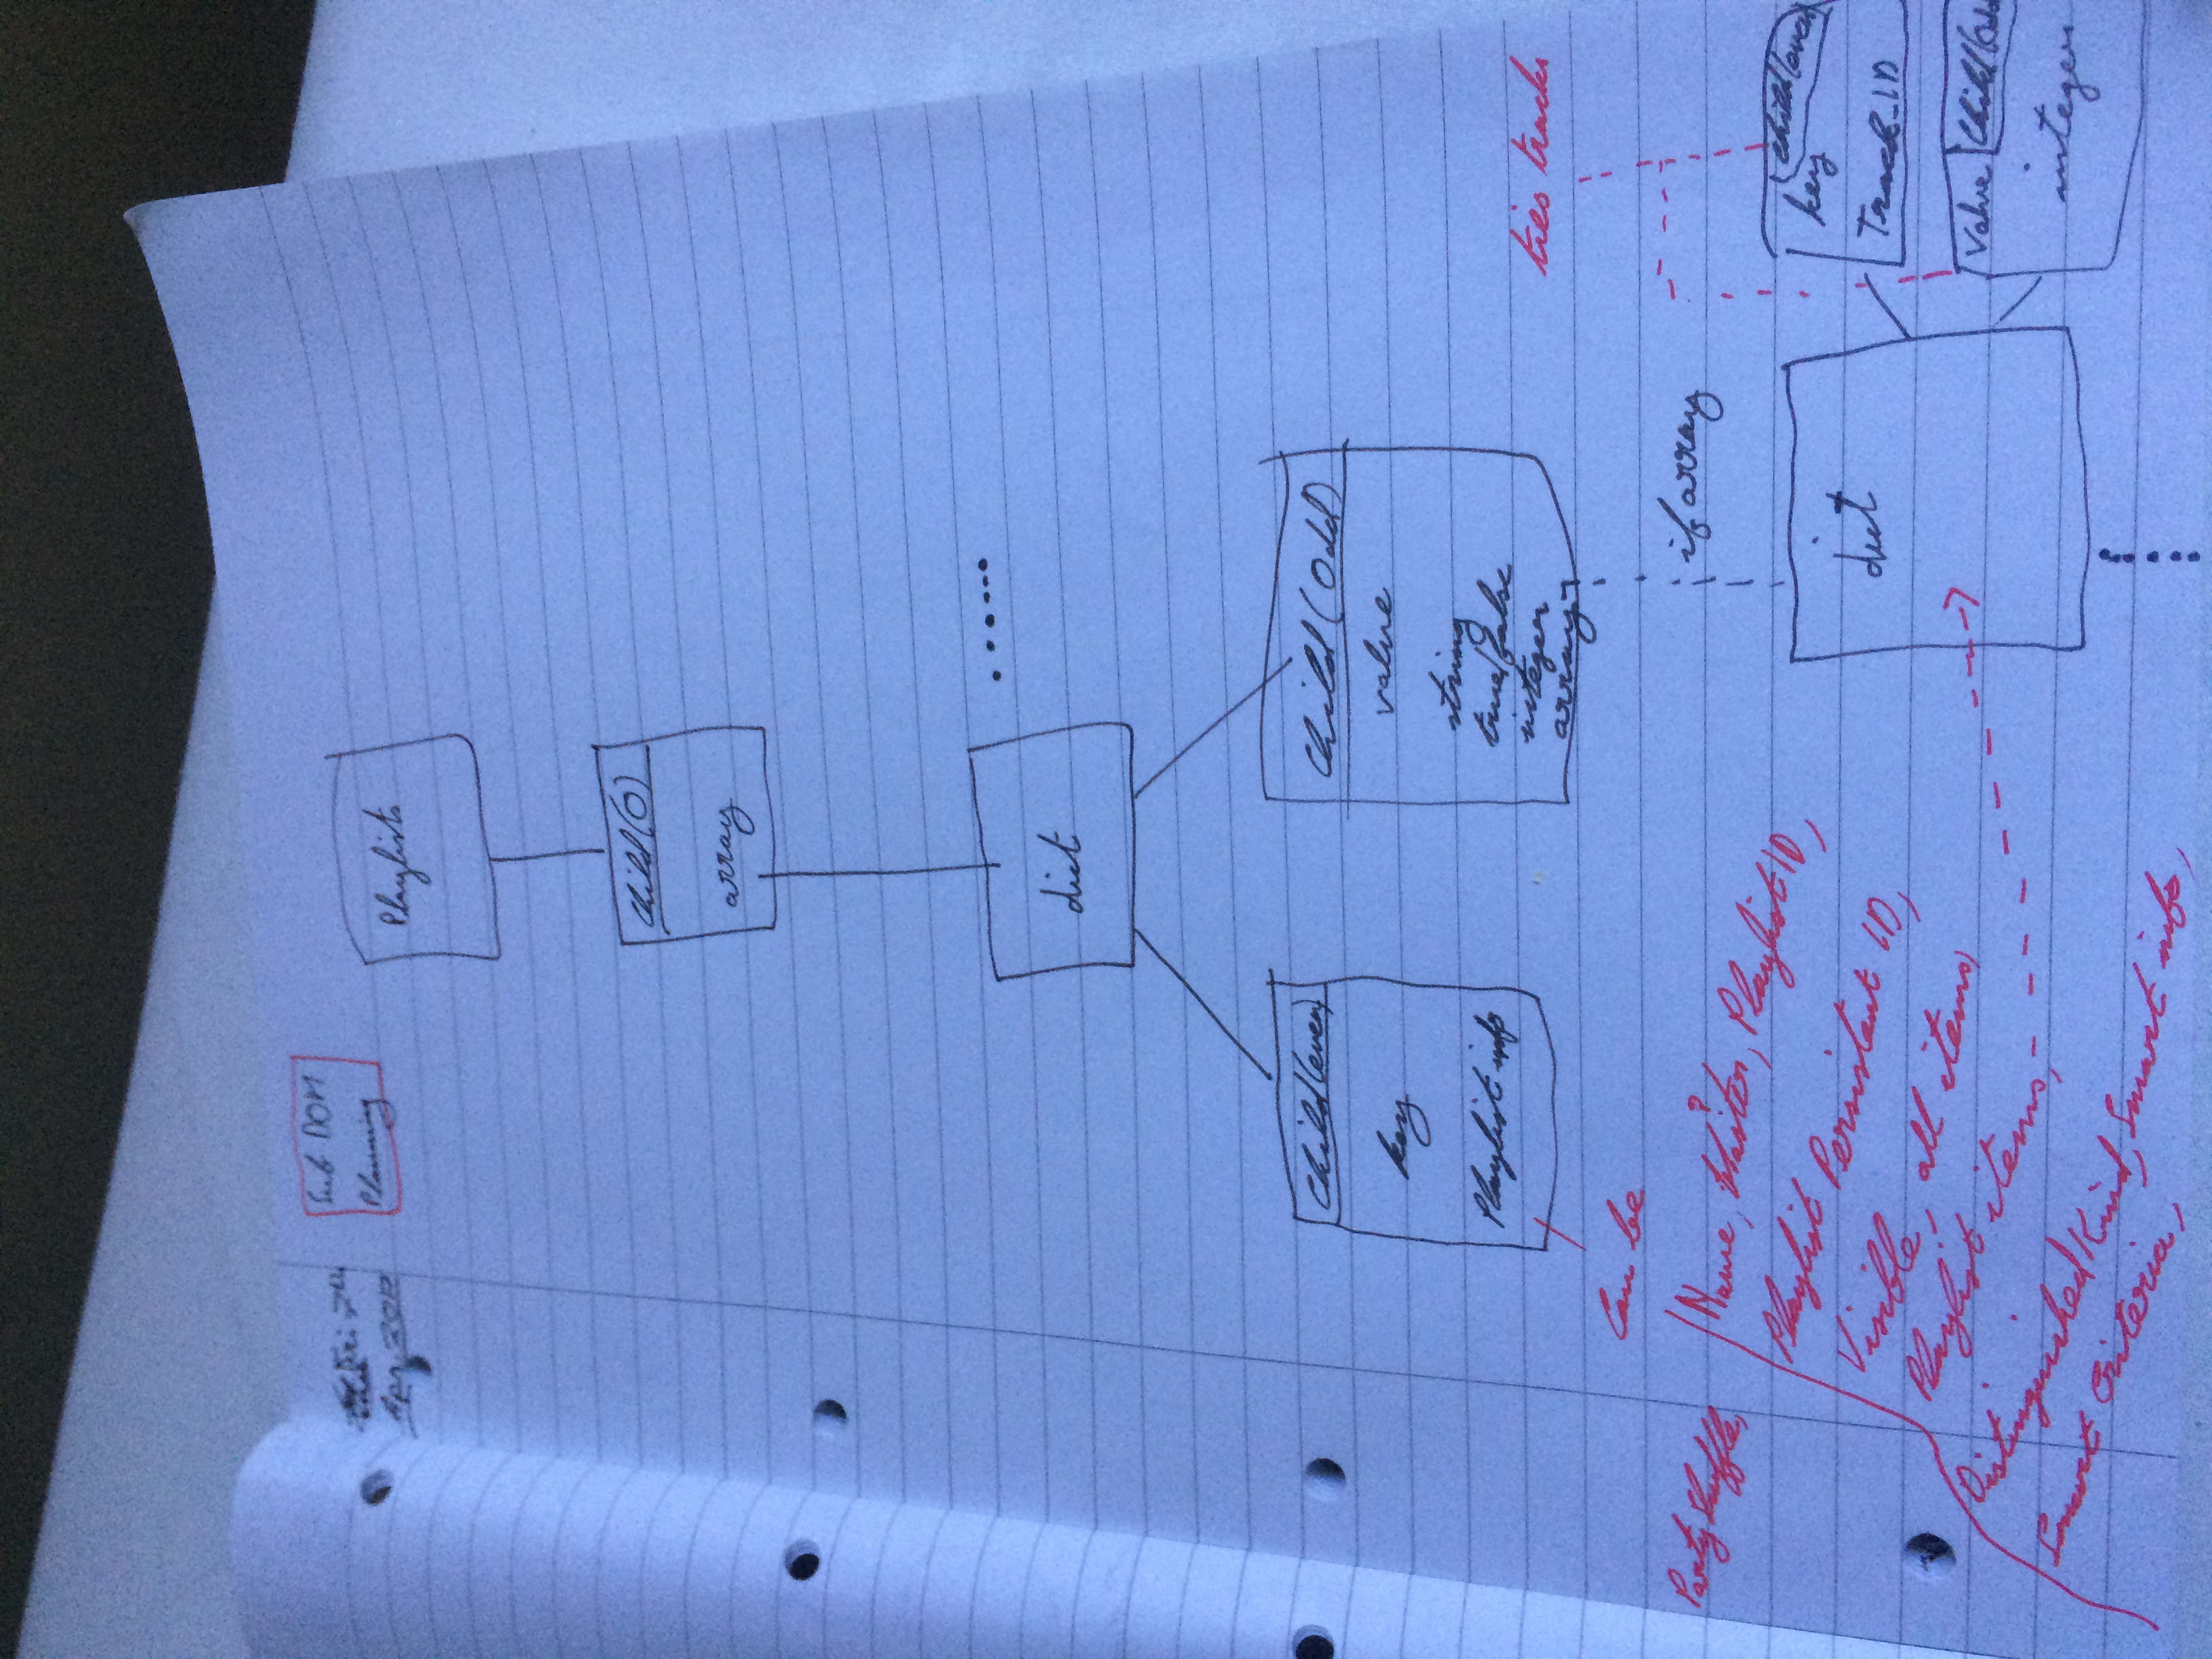 Fri 7th
Apr. 2017
Sub DOM
Planning
Playlists
Child(0)
array
dict
Child(even)
key
Playlist info
Child (Odd)
value
string
true/false
integer
array
if array
ties tracks
Can be
Party Shuffle,
Name, Master, Playlist ID,
?
Playlist Persistent ID,
Visible, all items,
Playlist items,
Distinguished Kind, Smart info,
Smart Criteria,
dict
child(even)
key
Track_ID
Value Child(Odd
integer